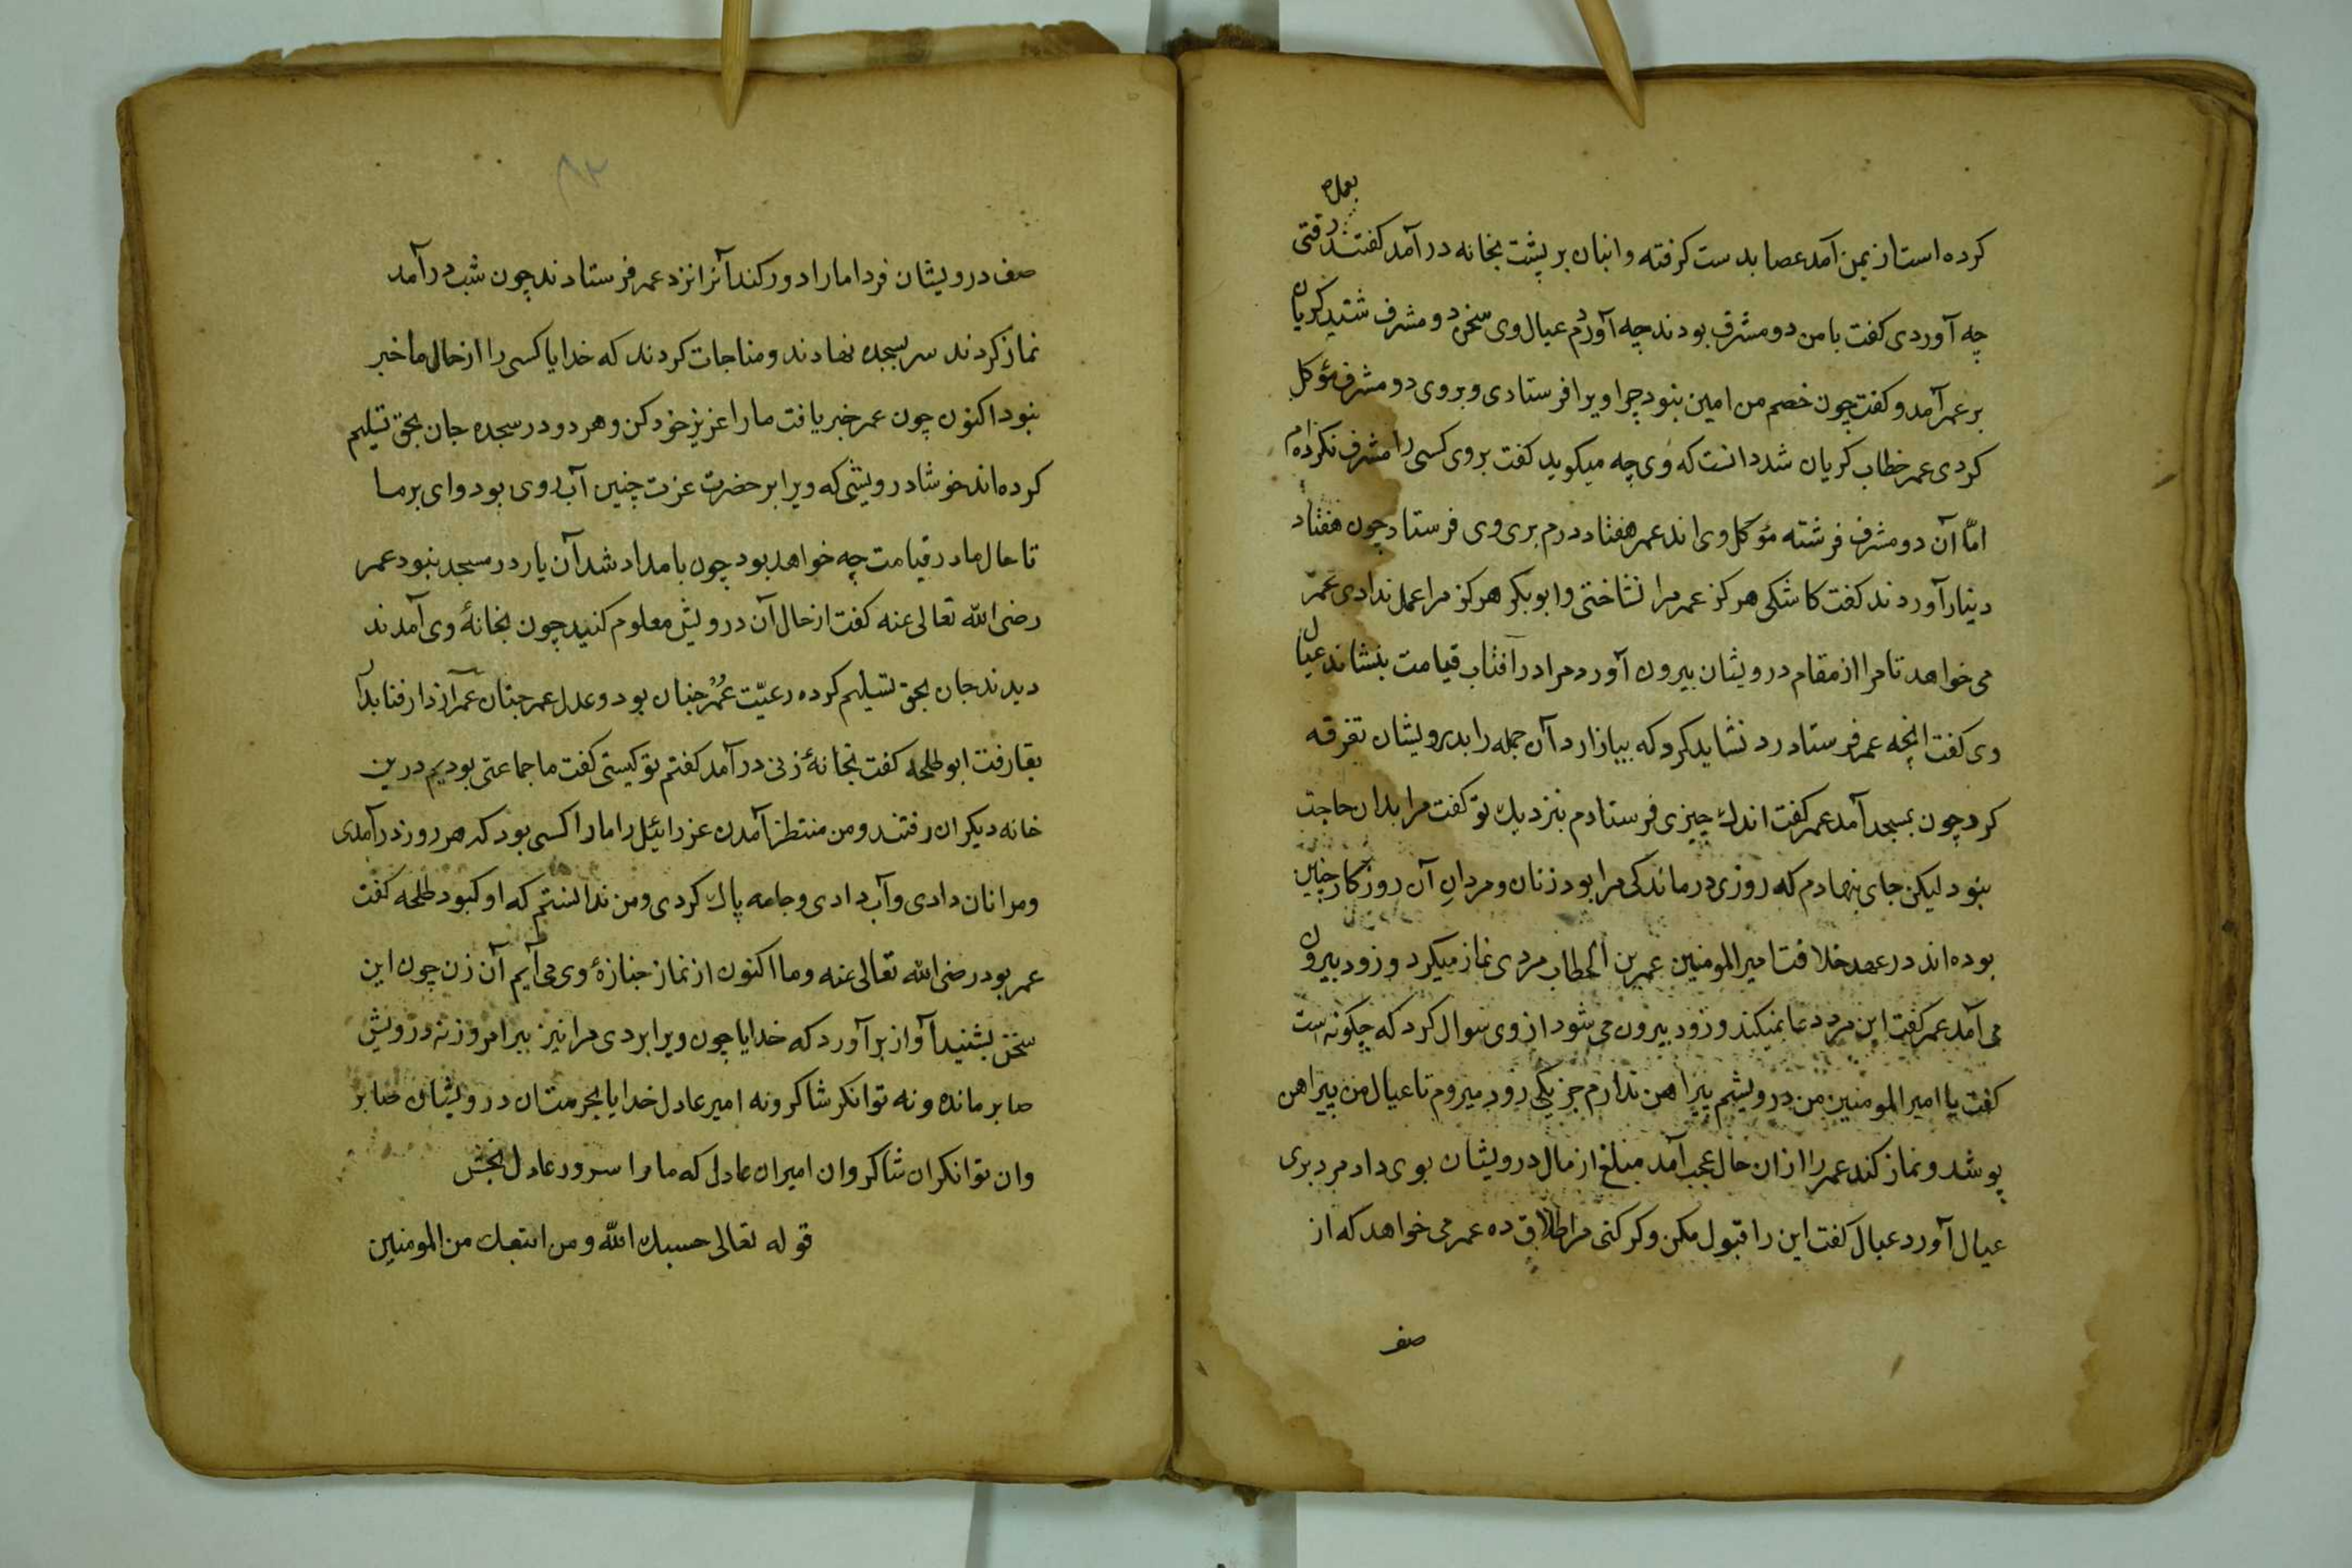 بعمل
کرده است از یمن آمد عصا بدست کرفته و انبان بر پشت بخانه در آمد کفتند رفتی
چه آوردی کفت با من دو مشرف بودند چه آوردم عیال وی سخن دو مشرف شنید کریان
بر عمر آمد و کفت چون خصم من امین نبود چرا ویرا فرستادی و بر وی دو مشرف مؤکل
کردی عمر خطاب کریان شد دانست که وی چه میکوید کفت بر وی کسی را مشرف نکرده ام
امّا آن دو مشرف فرشته مؤکل وی اند عمر هفتاد درم بری وی فرستاد چون هفتاد
دینار آوردند کفت کاشکی هرکز عمر مرا نشاختی و ابوبکر هرکز مرا عمل ندادی عمر
می خواهد تا مرا از مقام درویشان بیرون آورد مرا در آفتاب قیامت بنشاند عیال
وی کفت انچه عمر فرستاد رد نشاید کرد که بیازارد آن جمله را بدرویشان تفرقه
کرد چون بمسجد آمد عمر کفت اندک چیزی فرستادم بنزدیک تو کفت مرا بدان حاجت
نبود لیکن جای نهادم که روزی درماندکی مرا بود زنان و مردانِ آن روزکار چنین
بوده اند در عهد خلافت امیر المومنین عمر بن الخطاب مردی نماز میکرد و زود بیرون
می آمد عمر کفت این مرد دعا نمیکند و زود بیرون می شود از وی سوال کرد که چکونه است
کفت یا امیر المومنین من درویشم پیراهن ندارم جز یکی زود میروم تا عیال من پیراهن
پوشد و نماز کند عمر را ازان حال عجب آمد مبلغ از مال درویشان بوی داد مرد بری
عیال آورد عیال کفت این را قبول مکن و کر کنی مرا طلاق ده عمر می خواهد که از
صف
۸۲
صف درویشان فردا ما را دور کند آنرا نزد عمر فرستادند چون شب در آمد
نماز کردند سر بسجده نهادند و مناجات کردند که خدایا کسی را از حال ما خبر
نبود اکنون چون عمر خبر یافت ما را عزیز خود کن و هر دو در سجده جان بحق تسلیم
کرده اند خوشا درویشی که ویرا بر حضرت عزت چنین آب روی بود وای بر ما
تا حال ما در قیامت چه خواهد بود چون بامداد شد آن یار در مسجد نبود عمر
رضی الله تعالی عنه کفت از حال آن درویش معلوم کنید چون بخانهٔ وی آمدند
دیدند جان بحق تسلیم کرده رعیّت عُمَر چنان بود و عدل عمر چنان عمر از دار فنا بدار
بقا رفت ابو طلحه کفت بخانهٔ زنی در آمد کفتم تو کیستی کفت ما جماعتی بودیم درین
خانه دیکران رفتند و من منتظر آمدن عزرائیل را ما را کسی بود که هر روز در آمدی
و مرا نان دادی و آب دادی و جامه پاک کردی و من ندانستم که او کبود طلحه کفت
عمر بود رضی الله تعالی عنه و ما اکنون از نماز جنازهٔ وی می آیم آن زن چون این
سخن بشنید آواز بر آورد که خدایا چون ویرا بردی مرا نیز ببر امروز نه درویش
صابر مانده و نه توانکر شاکر و نه امیر عادل خدایا بحرمتان درویشان صابر
وان توانکران شاکر وان امیران عادل که ما مرا سرور عادل بخش
قوله تعالی حسبك الله ومن اتبعك من المومنین